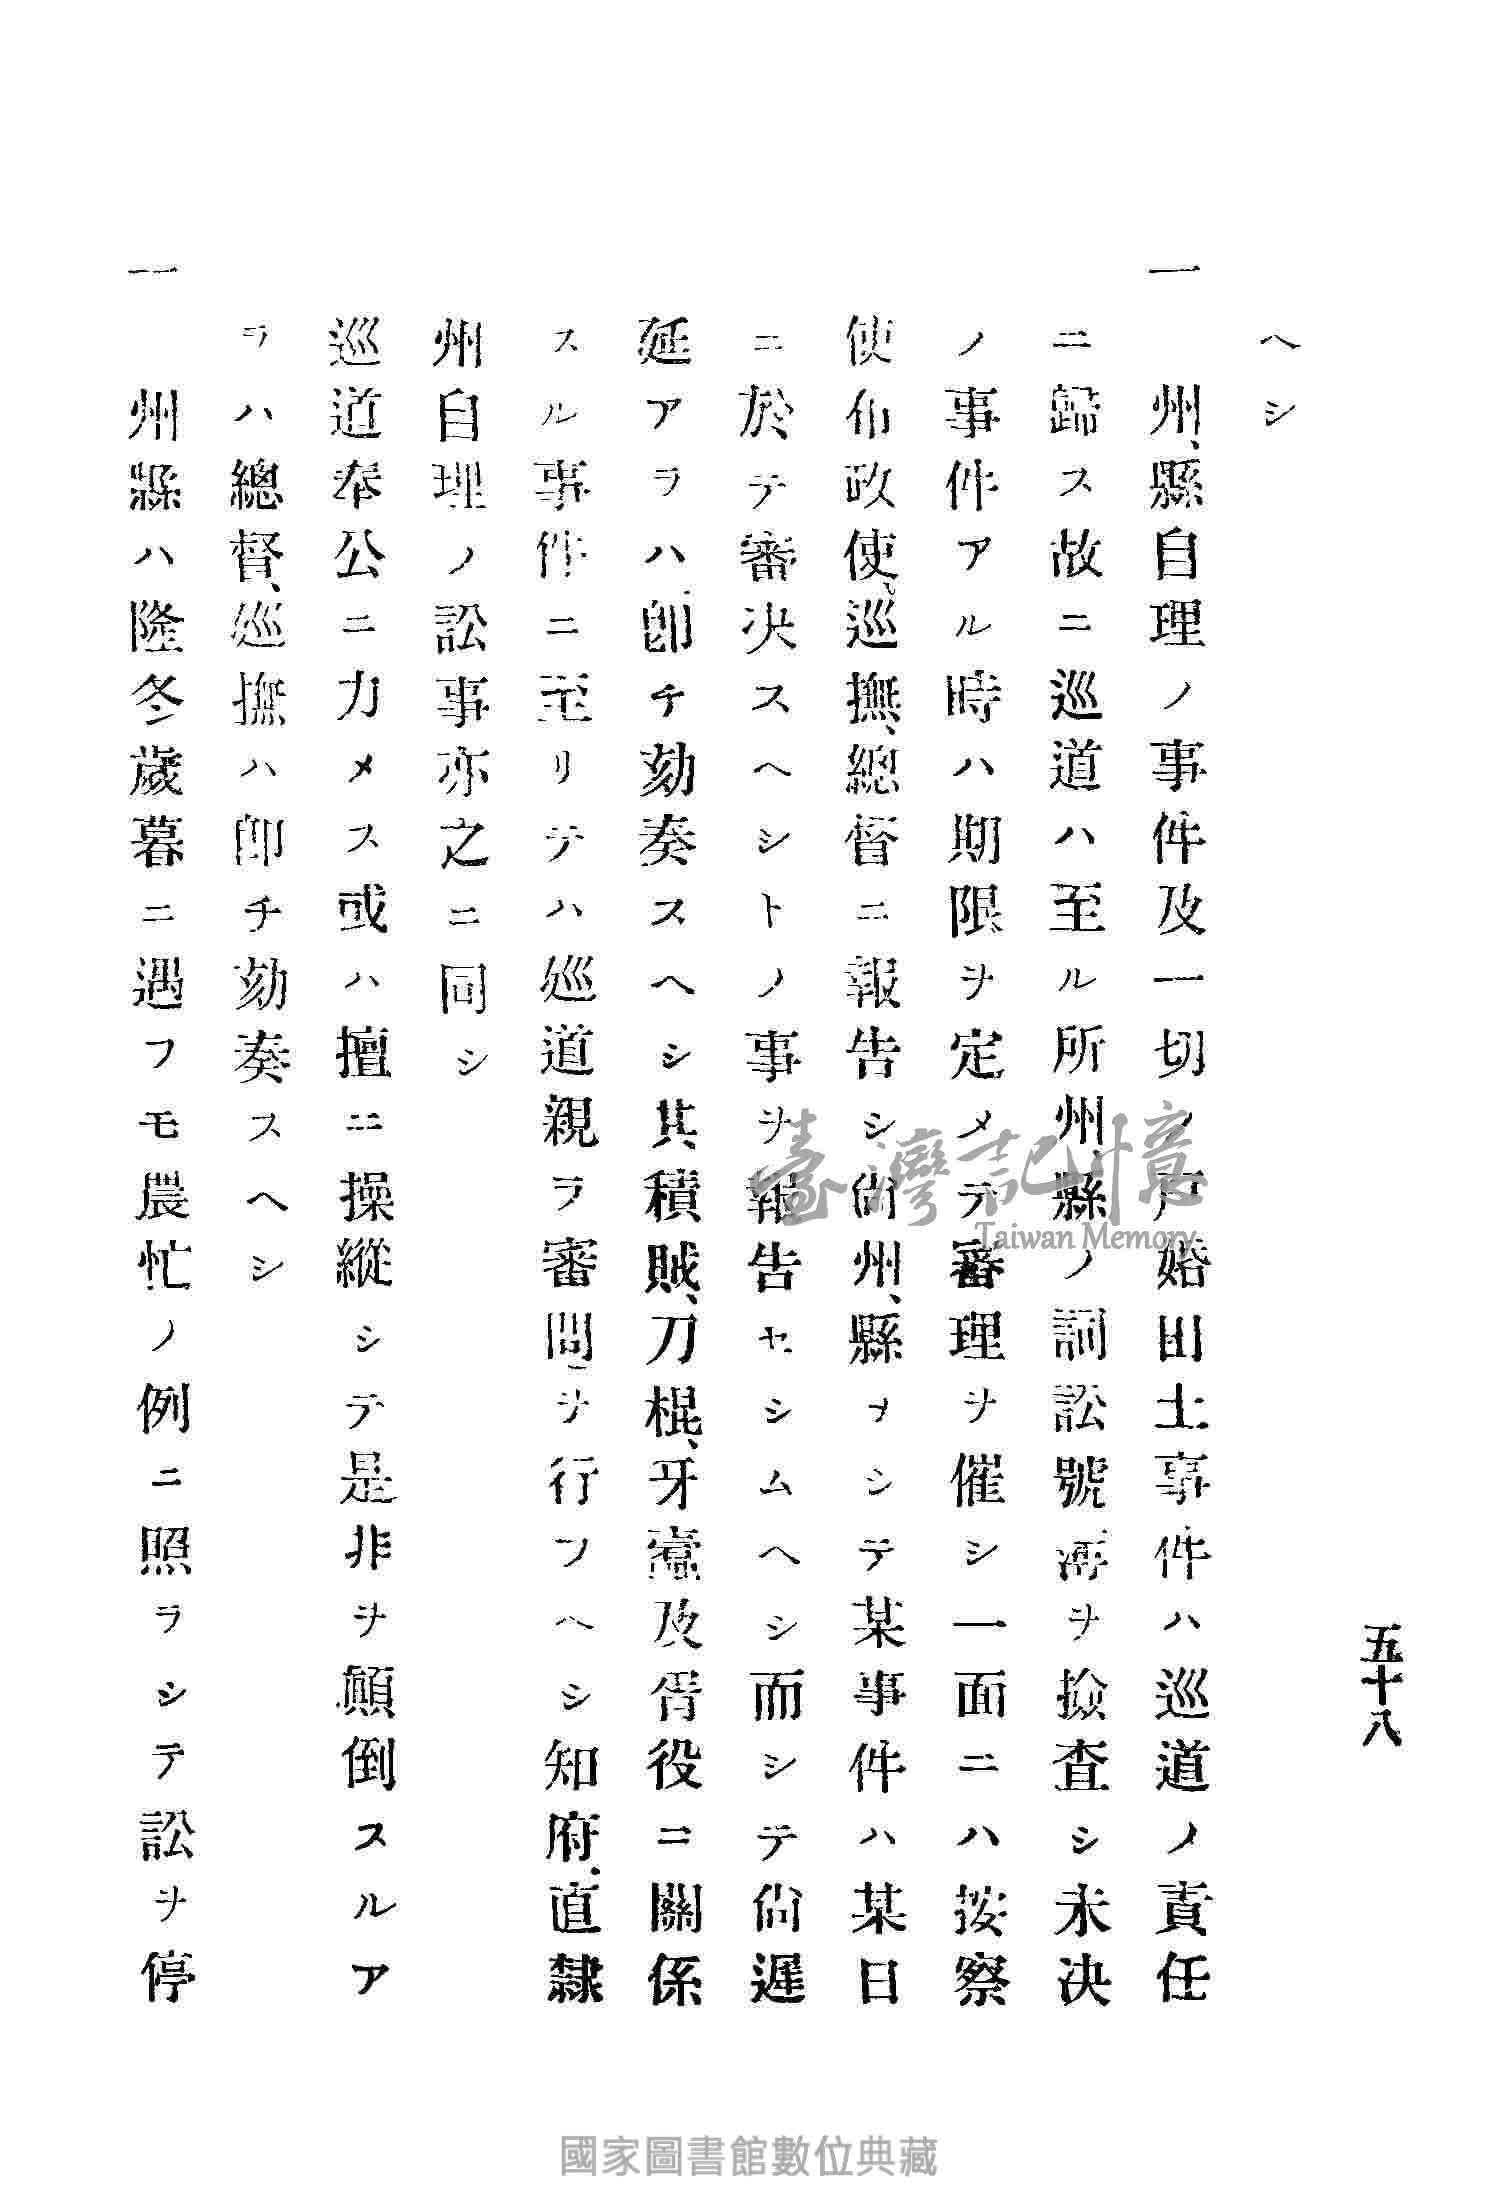 五十八
ヘシ
一　州、縣自理ノ事件及一切ノ戸婚田土事件ハ巡道ノ責任
ニ歸ス故ニ巡道ハ至ル所州、縣ノ詞訟號簿ヲ撿査シ未决
ノ事件アル時ハ期限ヲ定メテ審理ヲ催シ一面ニハ按察
使布政使、巡撫、總督ニ報告シ尙州、縣ヲシテ某事件ハ某日
ニ於テ審决スヘシトノ事ヲ報告セシムヘシ而シテ尙遲
延アラハ卽チ劾奏スヘシ其積賊、刀棍、牙蠹及胥役ニ關係
スル事件ニ至リテハ巡道親ヲ審問ヲ行フヘシ知府、直隸
州自理ノ訟事亦之ニ同シ
巡道奉公ニ力メス或ハ擅ニ操縱シテ是非ヲ顛倒スルア
ラハ總督、巡撫ハ卽チ劾奏スヘシ
一　州縣ハ隆冬歲暮ニ遇フモ農忙ノ例ニ照ラシテ訟ヲ停
臺灣記憶
Taiwan Memory
國家圖書館數位典藏